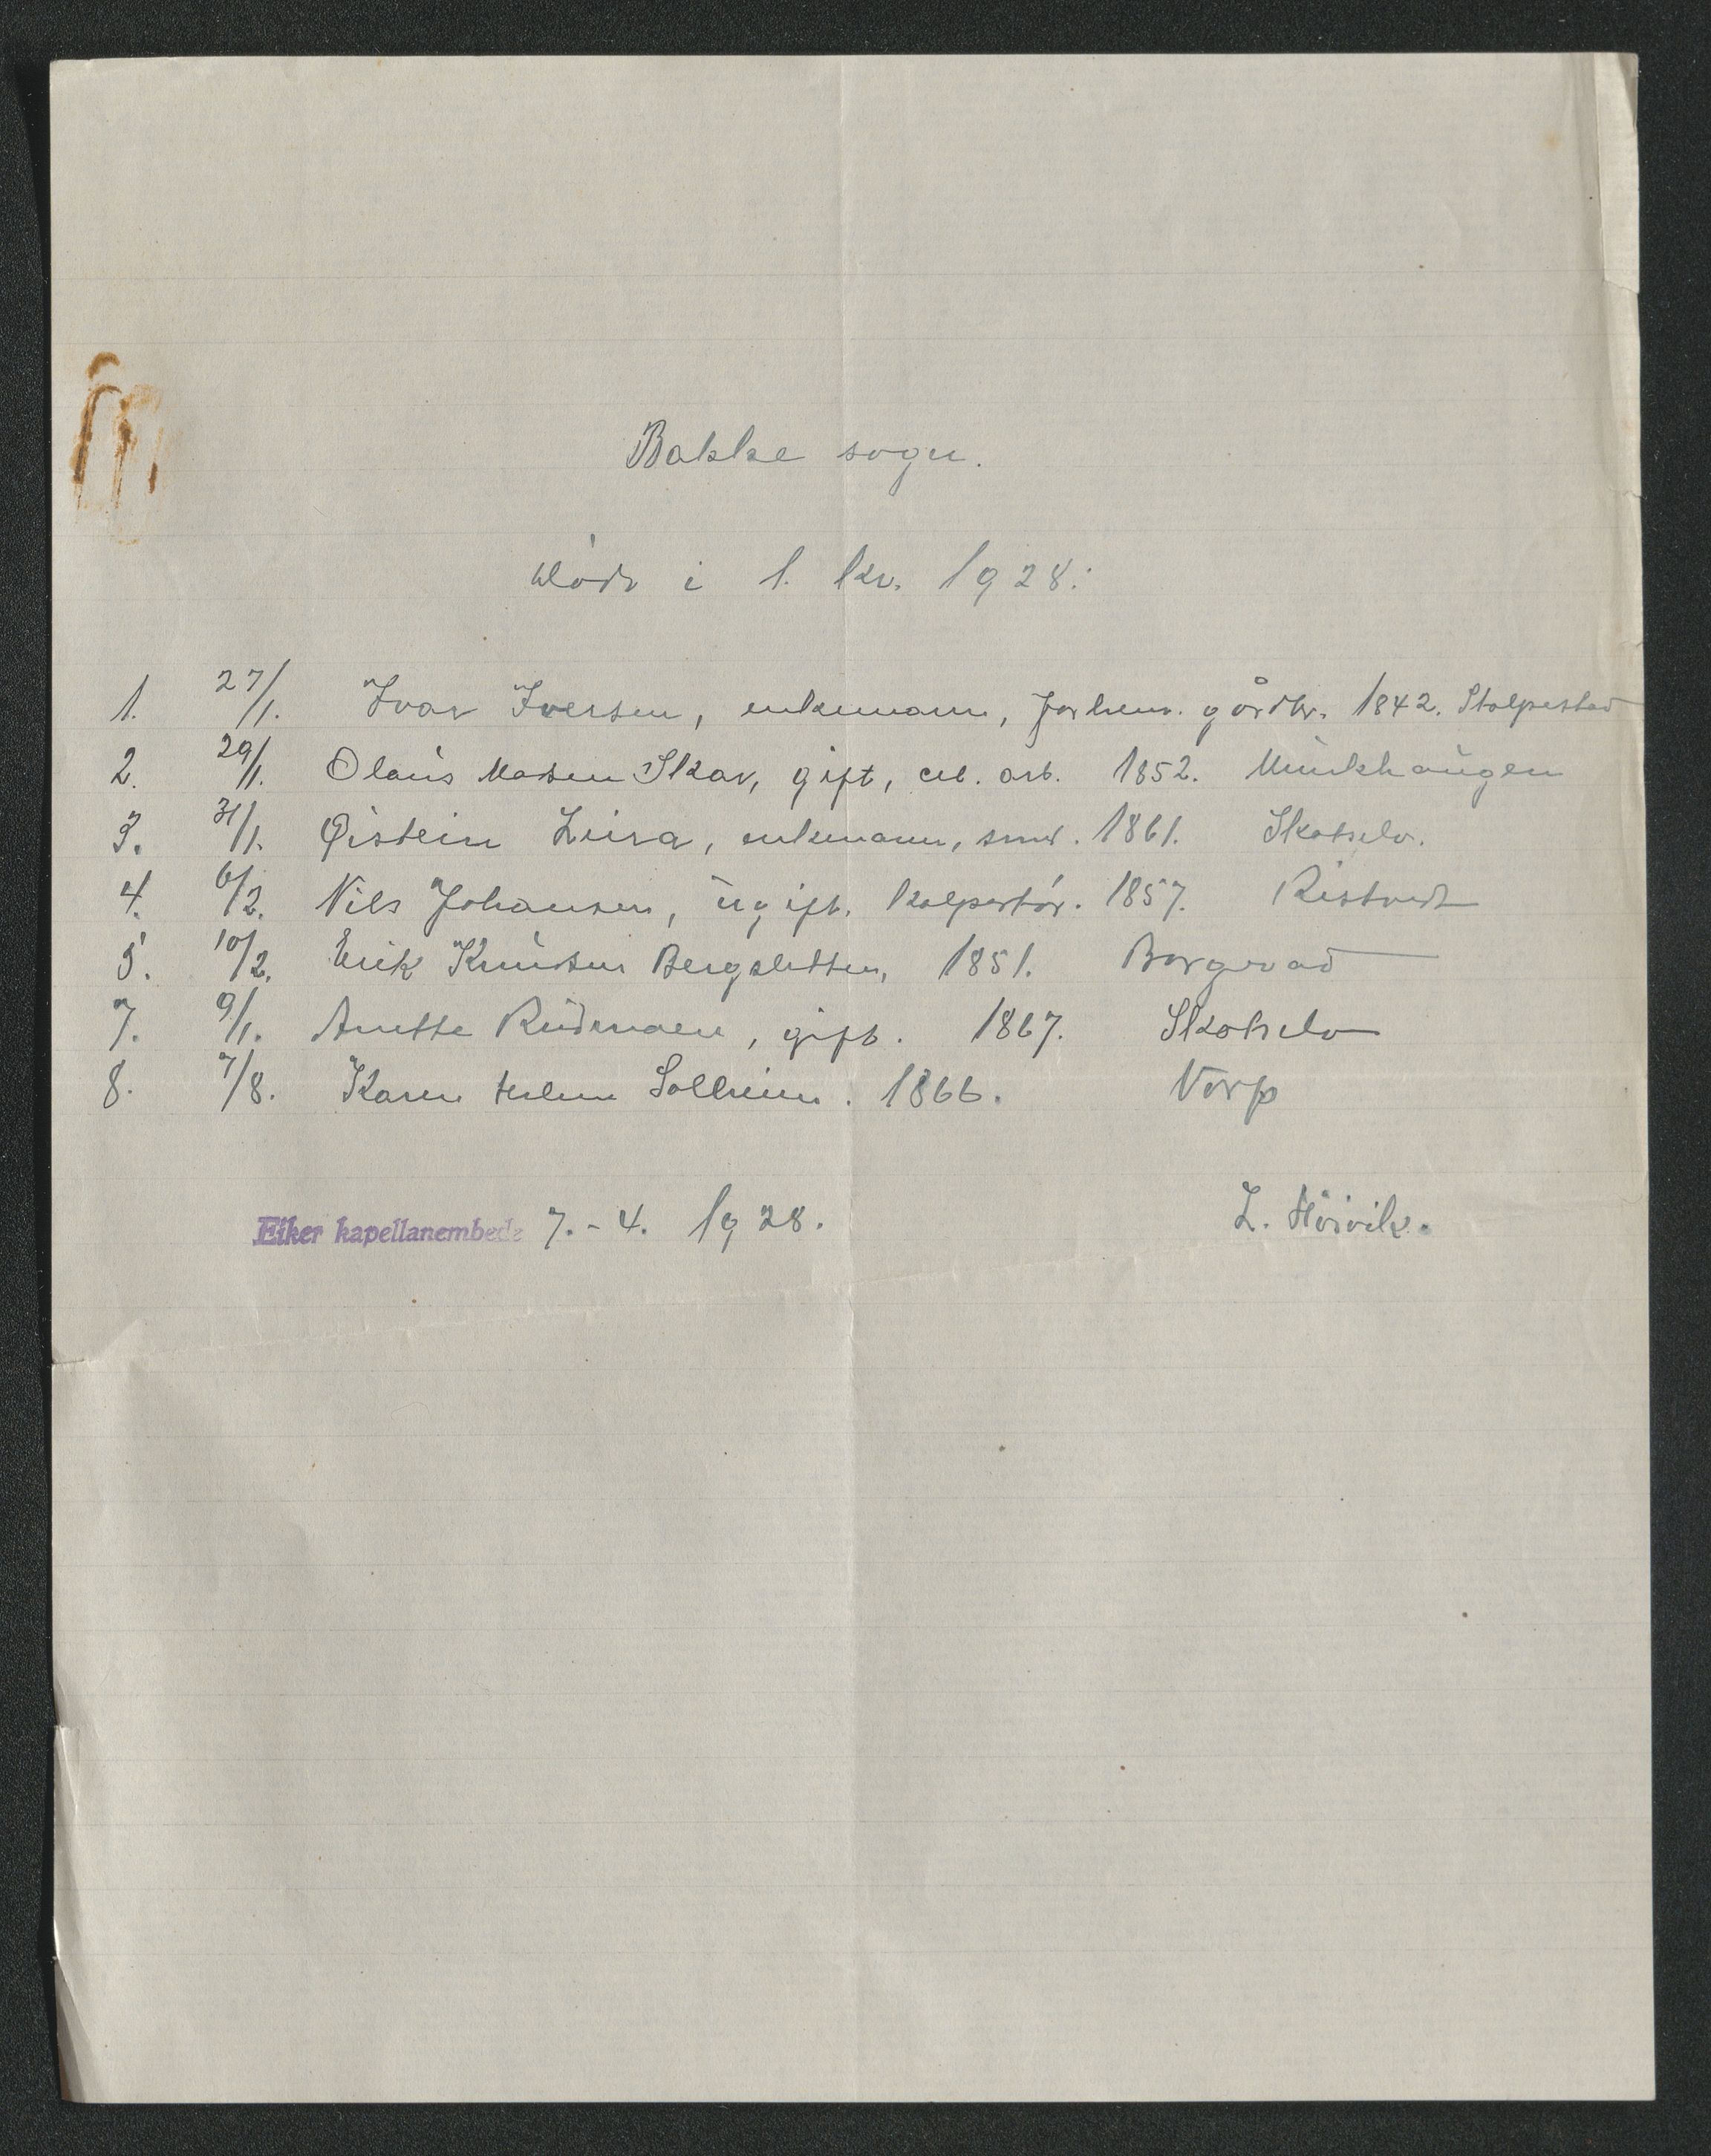 Bakke sogn.
Døde i 1. kv. 1928:
1. 27/1. Ivar Iversen, enkemann, forhenv. gårdbr. 1842. Stolpestad
2. 29/1. Olaus Madsen Skar, gift, cel. arb. 1852. Munkhaugen
3. 31/1. Øistein Lura, enkemann, smed. 1861. Skotselv.
4. 6/2. Nils Johansen, ugift, kolportør. 1857. Ristvedt
5. 10/2. Erik Knudsen Bergsletten, 1851. Borgevad
7. 9/1. Anette Rudmoen, gift. 1867. Skotselv
8. 7/8. Karen Helene Solheim. 1866. Vorp
Eiker kapellanembede 7.-4. 1928. L. Höivik.